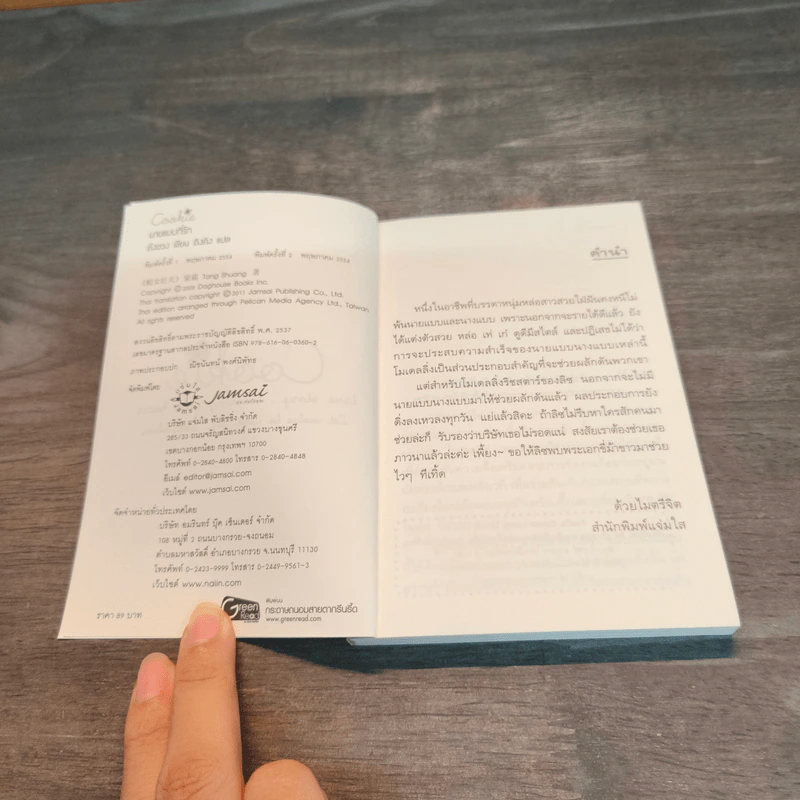 Cookie
นายแบบที่รัก
ถังซวง เขียน ถิงถิง แปล
พิมพ์ครั้งที่ 1 พฤษภาคม 2554 พิมพ์ครั้งที่ 2 พฤษภาคม 2554
Tang Shuang 著
Copyright ©2009 Doghouse Books Inc.
This translation copyright ©2011 Jamsai Publishing Co., Ltd.
This edition arranged through Pelican Media Agency Ltd., Taiwan
All rights reserved
สงวนลิขสิทธิ์ตามพระราชบัญญัติลิขสิทธิ์ พ.ศ. 2537
เลขมาตรฐานสากลประจำหนังสือ ISBN 978-616-06-0360-2
ภาพประกอบปก ณิชนันทน์ พงศ์นิพัทธ
จัดพิมพ์โดย
jamsai
บริษัท แจ่มใส พับลิชชิ่ง จำกัด
285/33 ถนนจรัญสนิทวงศ์ แขวงบางขุนศรี
เขตบางกอกน้อย กรุงเทพฯ 10700
โทรศัพท์ 0-2840-4800 โทรสาร 0-2840-4848
อีเมล์ editor@jamsai.com
เว็บไซต์ www.jamsai.com
จัดจำหน่ายทั่วประเทศโดย
บริษัท อมรินทร์ บุ๊ค เซ็นเตอร์ จำกัด
108 หมู่ที่ 2 ถนนบางกรวย-จงถนอม
ตำบลมหาสวัสดิ์ อำเภอบางกรวย จ.นนทบุรี 11130
โทรศัพท์ 0-2423-9999 โทรสาร 0-2449-9561-3
เว็บไซต์ www.naiin.com
ราคา 89 บาท
Green Read
พิมพ์ด้วย
กระดาษถนอมสายตากรีนรี้ด
www.greenread.com
คำนำ
หนึ่งในอาชีพที่บรรดาหนุ่มหล่อสาวสวยใฝ่ฝันคงหนีไม่
พ้นนายแบบและนางแบบ เพราะนอกจากจะรายได้ดีแล้ว ยัง
ได้แต่งตัวสวย หล่อ เท่ เก๋ ดูดีมีสไตล์ และปฏิเสธไม่ได้ว่า
การจะประสบความสำเร็จของนายแบบนางแบบเหล่านี้
โมเดลลิ่งเป็นส่วนประกอบสำคัญที่จะช่วยผลักดันพวกเขา
แต่สำหรับโมเดลลิ่งริชสตาร์ของลิซ นอกจากจะไม่มี
นายแบบนางแบบมาให้ช่วยผลักดันแล้ว ผลประกอบการยัง
ดิ่งลงเหวลงทุกวัน แย่แล้วสิคะ ถ้าลิซไม่รีบหาใครสักคนมา
ช่วยล่ะก็ รับรองว่าบริษัทเธอไม่รอดแน่ สงสัยเราต้องช่วยเธอ
ภาวนาแล้วล่ะค่ะ เพี้ยง~ ขอให้ลิซพบพระเอกขี่ม้าขาวมาช่วย
ไวๆ ทีเทิ้ด
ด้วยไมตรีจิต
สำนักพิมพ์แจ่มใส